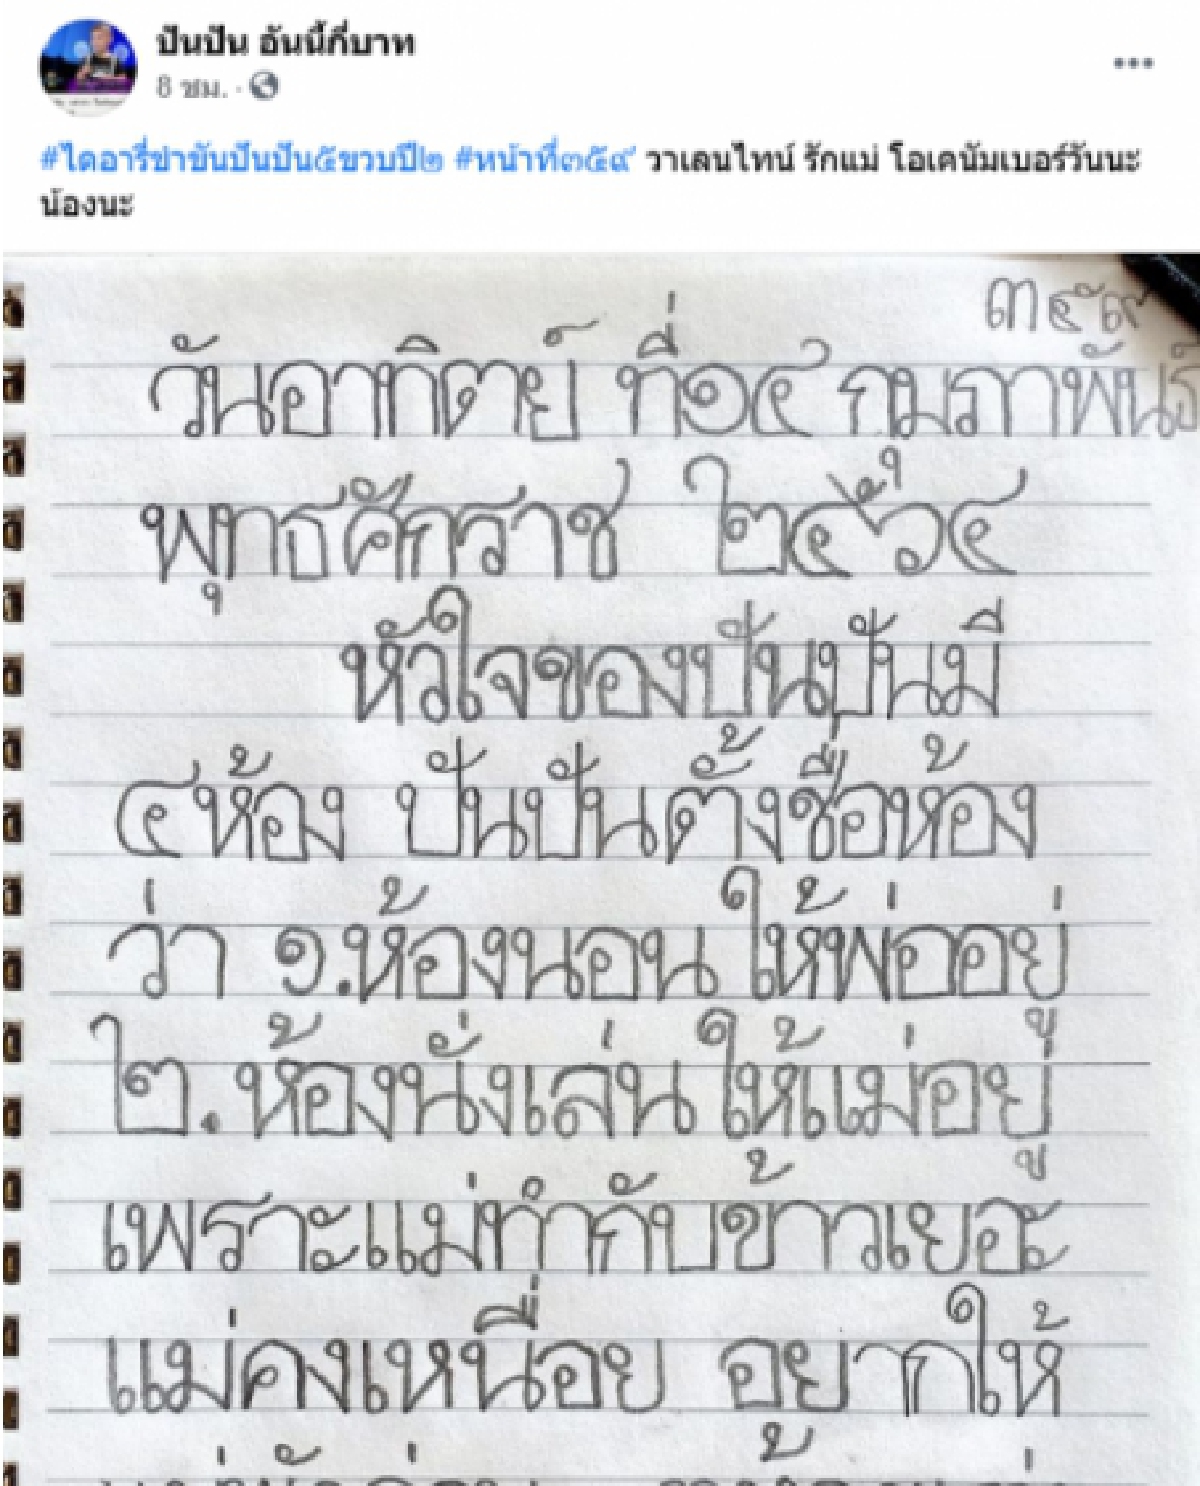 ปันปัน อันนี้กี่บาท
8 ชม.
#ไดอารี่ขำขันปันปัน๕ขวบปี๒ #หน้าที่๓๕๙ วาเลนไทน์ รักแม่ โอเคนัมเบอร์วันนะ
น้องนะ
๓๕๙
วันอาทิตย์ ที่๑๔ กุมภาพันธ์
พุทธศักราช ๒๕๖๔
หัวใจของปันปันมี
๔ห้อง ปันปันตั้งชื่อห้อง
ว่า ๑.ห้องนอน ให้พ่ออยู่
๒.ห้องนั่งเล่น ให้แม่อยู่
เพราะแม่ทำกับข้าวเยอะ
แม่คงเหนื่อย อยากให้